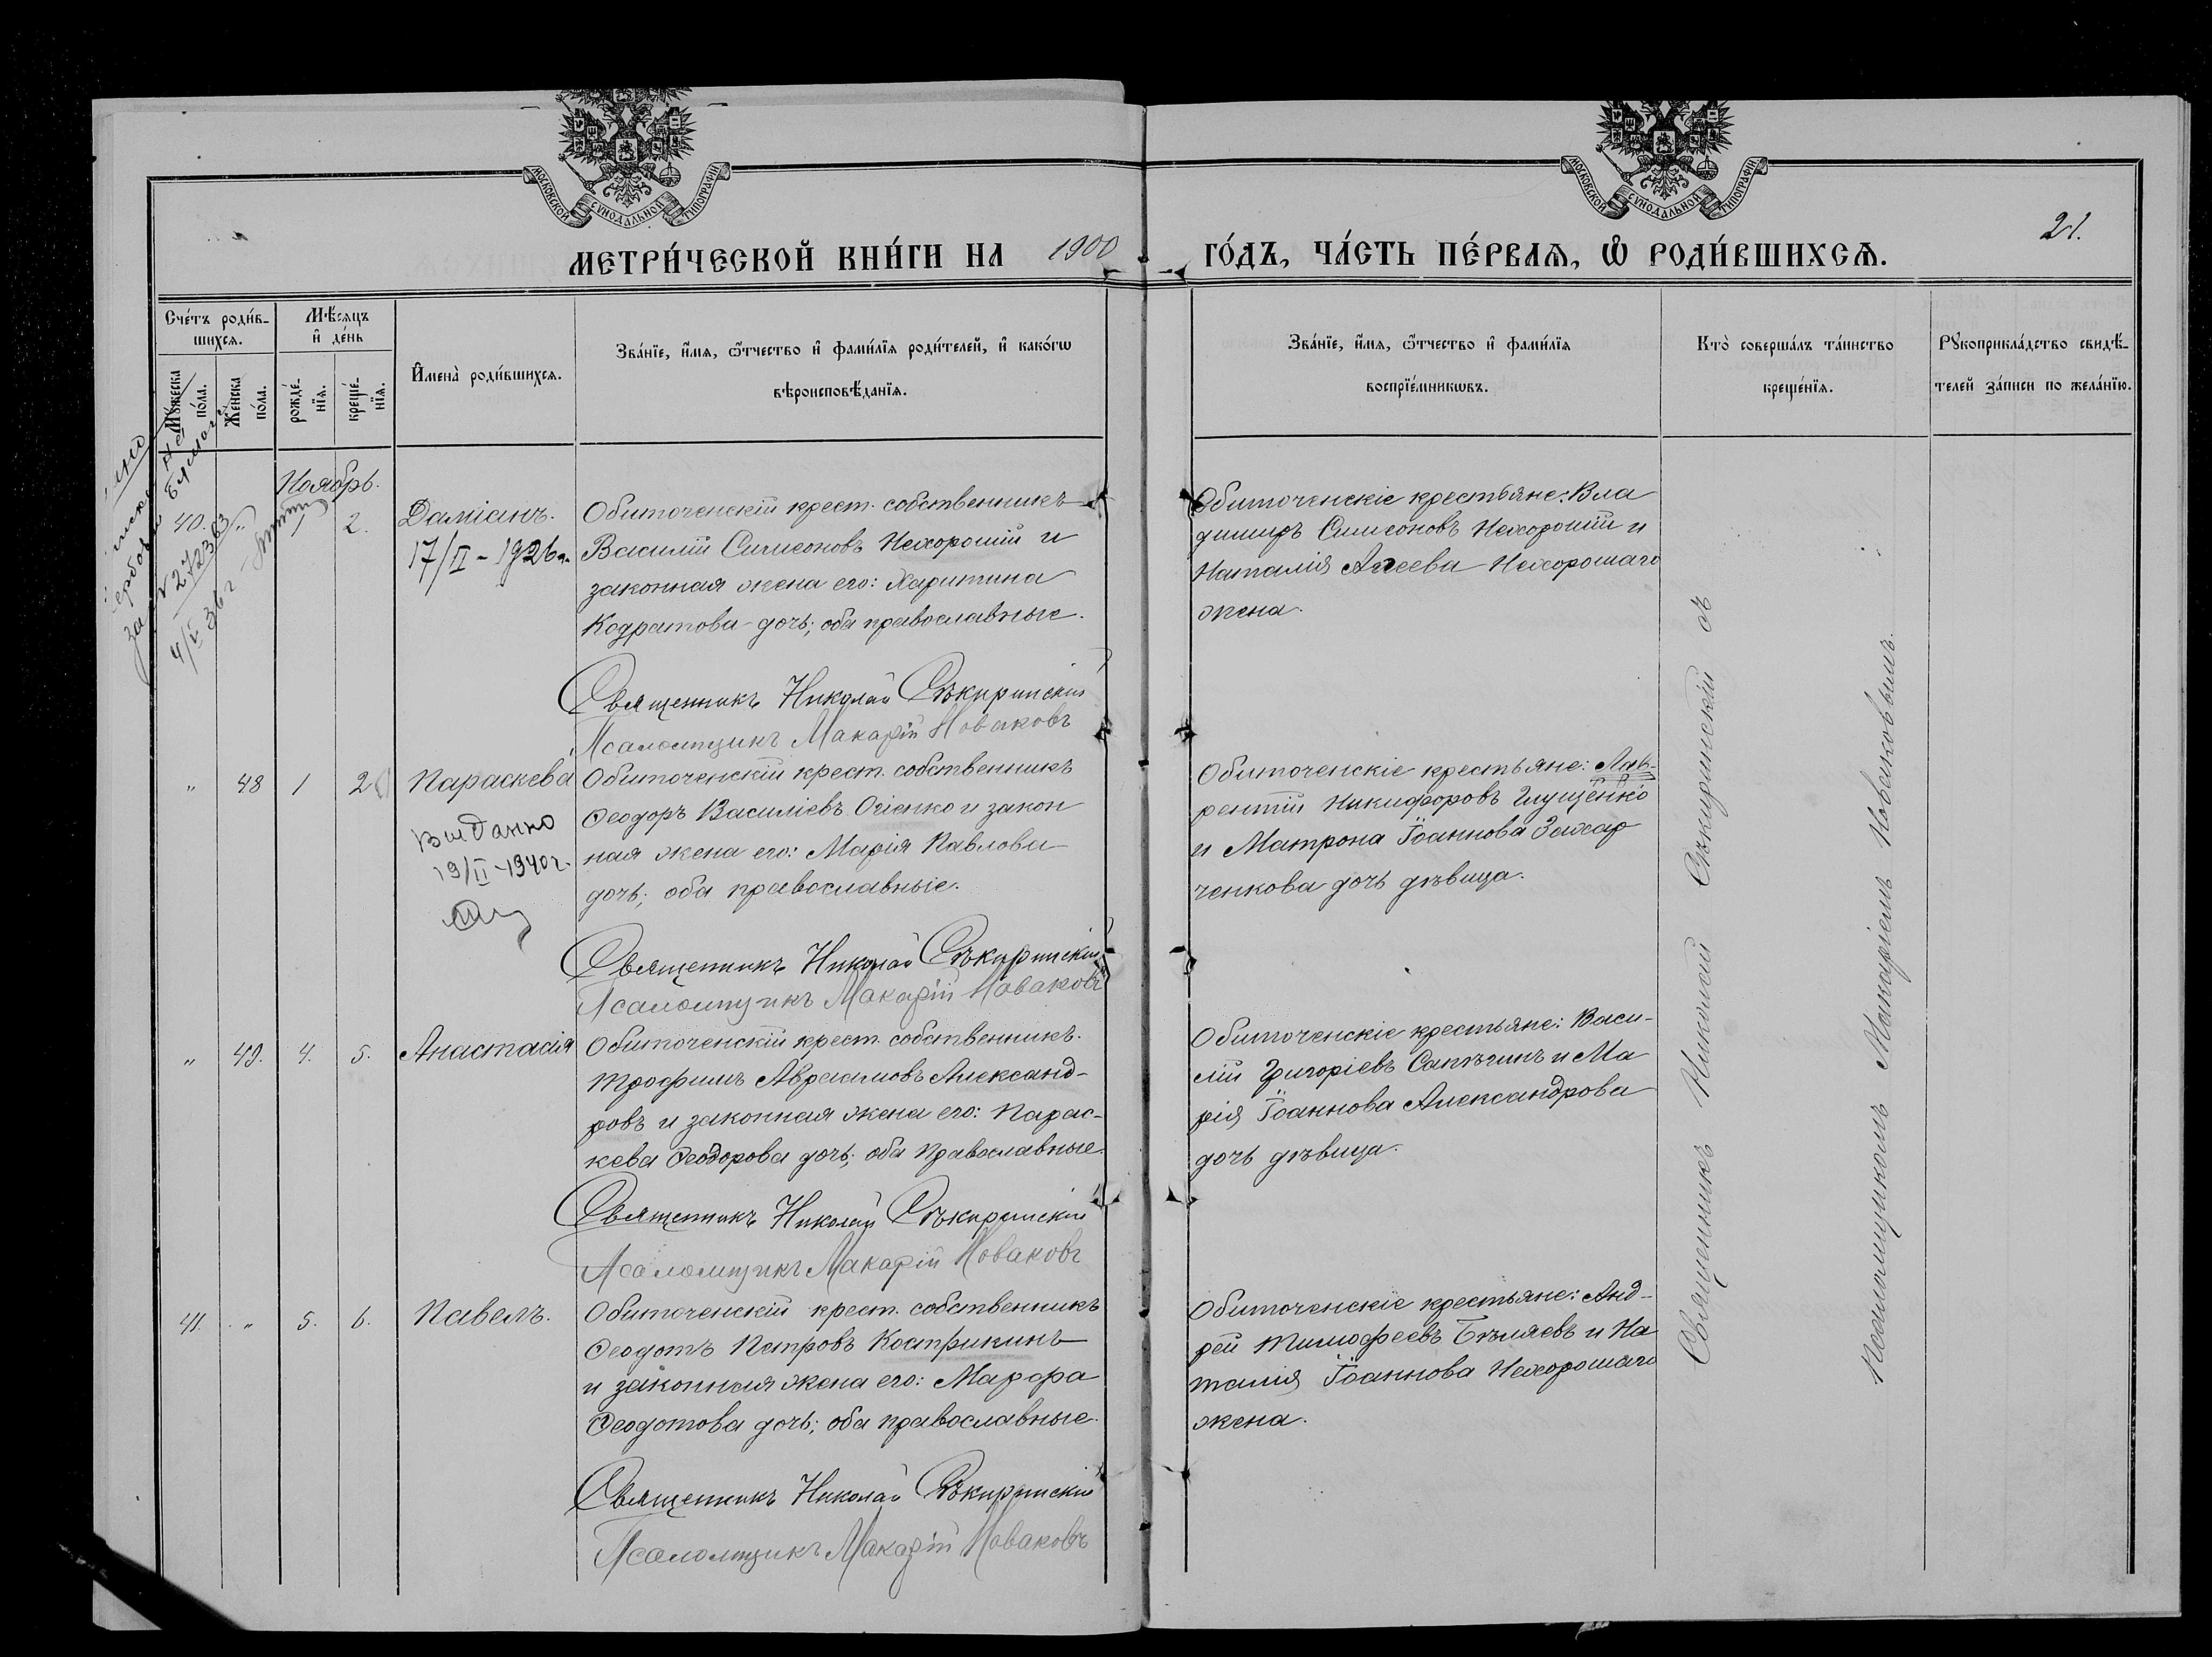 МОСКОВСКОЙ СѴНОДАЛЬНОЙ ТИПОГРАФІИ
МОСКОВСКОЙ СѴНОДАЛЬНОЙ ТИПОГРАФІИ
21.
МЕТРИ́ЧЕСКОЙ КНИ́ГИ НА 1900 ГО́ДЪ, ЧА́СТЬ ПЕ́РВАѦ, Ѡ РОДИ́ВШИХСѦ.
Сче́тъ роди́в-
шихсѧ.
Мѣ́сѧцъ
и҆ де́нь
Мꙋ́жеска
по́ла.
Же́нска
по́ла.
рожде́-
нїѧ.
креще́-
нїѧ.
И҆мена̀ роди́вшихсѧ.
Зва́нїе, и҆́мѧ, ѻ҆́тчество и҆ фами́лїѧ роди́телей, и҆ како́гѡ
вѣроисповѣ́данїѧ.
Зва́нїе, и҆́мѧ, ѻ҆́тчество и҆ фами́лїѧ
воспрїе́мникѡвъ.
Кто̀ соверша́лъ та́инство
креще́нїѧ.
Рꙋкоприкла́дство свидѣ́-
телей за́писи по жела́нїю.
Ноябрь.
40. " 1 2. Даміанъ.
17/II - 1926 г.
Обиточенскій крест. собственникъ
Василій Симеоновъ Нехорошій и
законная жена его: Харитина
Кодратова дочь; оба православные.
Священникъ Николай Сѣкиринскій
Псаломщикъ Макарій Новаковъ
Обиточенскіе крестьяне: Вла
димиръ Симеоновъ Нехорошій и
Наталія Агеева Нехорошаго
жена.
за № 272363
4/V 36 г
" 48 1 2 Параскева
Выданно
19/II-1940 г.
Обиточенскій крест. собственникъ
Ѳеодоръ Василіевъ Огіенко и закон
ная жена его: Марія Павлова
дочь; оба православные.
Священникъ Николай Сѣкиринскій
Псаломщикъ Макарій Новаковъ
Обиточенскіе крестьяне: Лав-
рентій Никифоровъ Глущенко
и Матрона Іоаннова Захар
ченкова дочь дѣвица.
" 49. 4. 5. Анастасія
Обиточенскій крест. собственникъ.
Трофимъ Авраамовъ Александ-
ровъ и законная жена его: Парас-
кева Ѳеодорова дочь; оба православные.
Священникъ Николай Сѣкиринскій
Псаломщикъ Макарій Новаковъ
Обиточенскіе крестьяне: Васи-
лій Григоріевъ Сапѣгинъ и Ма
рія Іоаннова Александрова
дочь дѣвица.
41. " 5. 6. Павелъ.
Обиточенскій крест. собственникъ
Ѳеодотъ Петровъ Кострикинъ
и законная жена его: Марфа
Ѳеодотова дочь; оба православные.
Священникъ Николай Сѣкиринскій
Псаломщикъ Макарій Новаковъ
Обиточенскіе крестьяне: Анд-
рей Тимофеевъ Бѣляевъ и На
талія Іоаннова Нехорошаго
жена.
Священникъ Николай Сѣкиринскій съ
Псаломщикомъ Макаріемъ Новаковымъ.